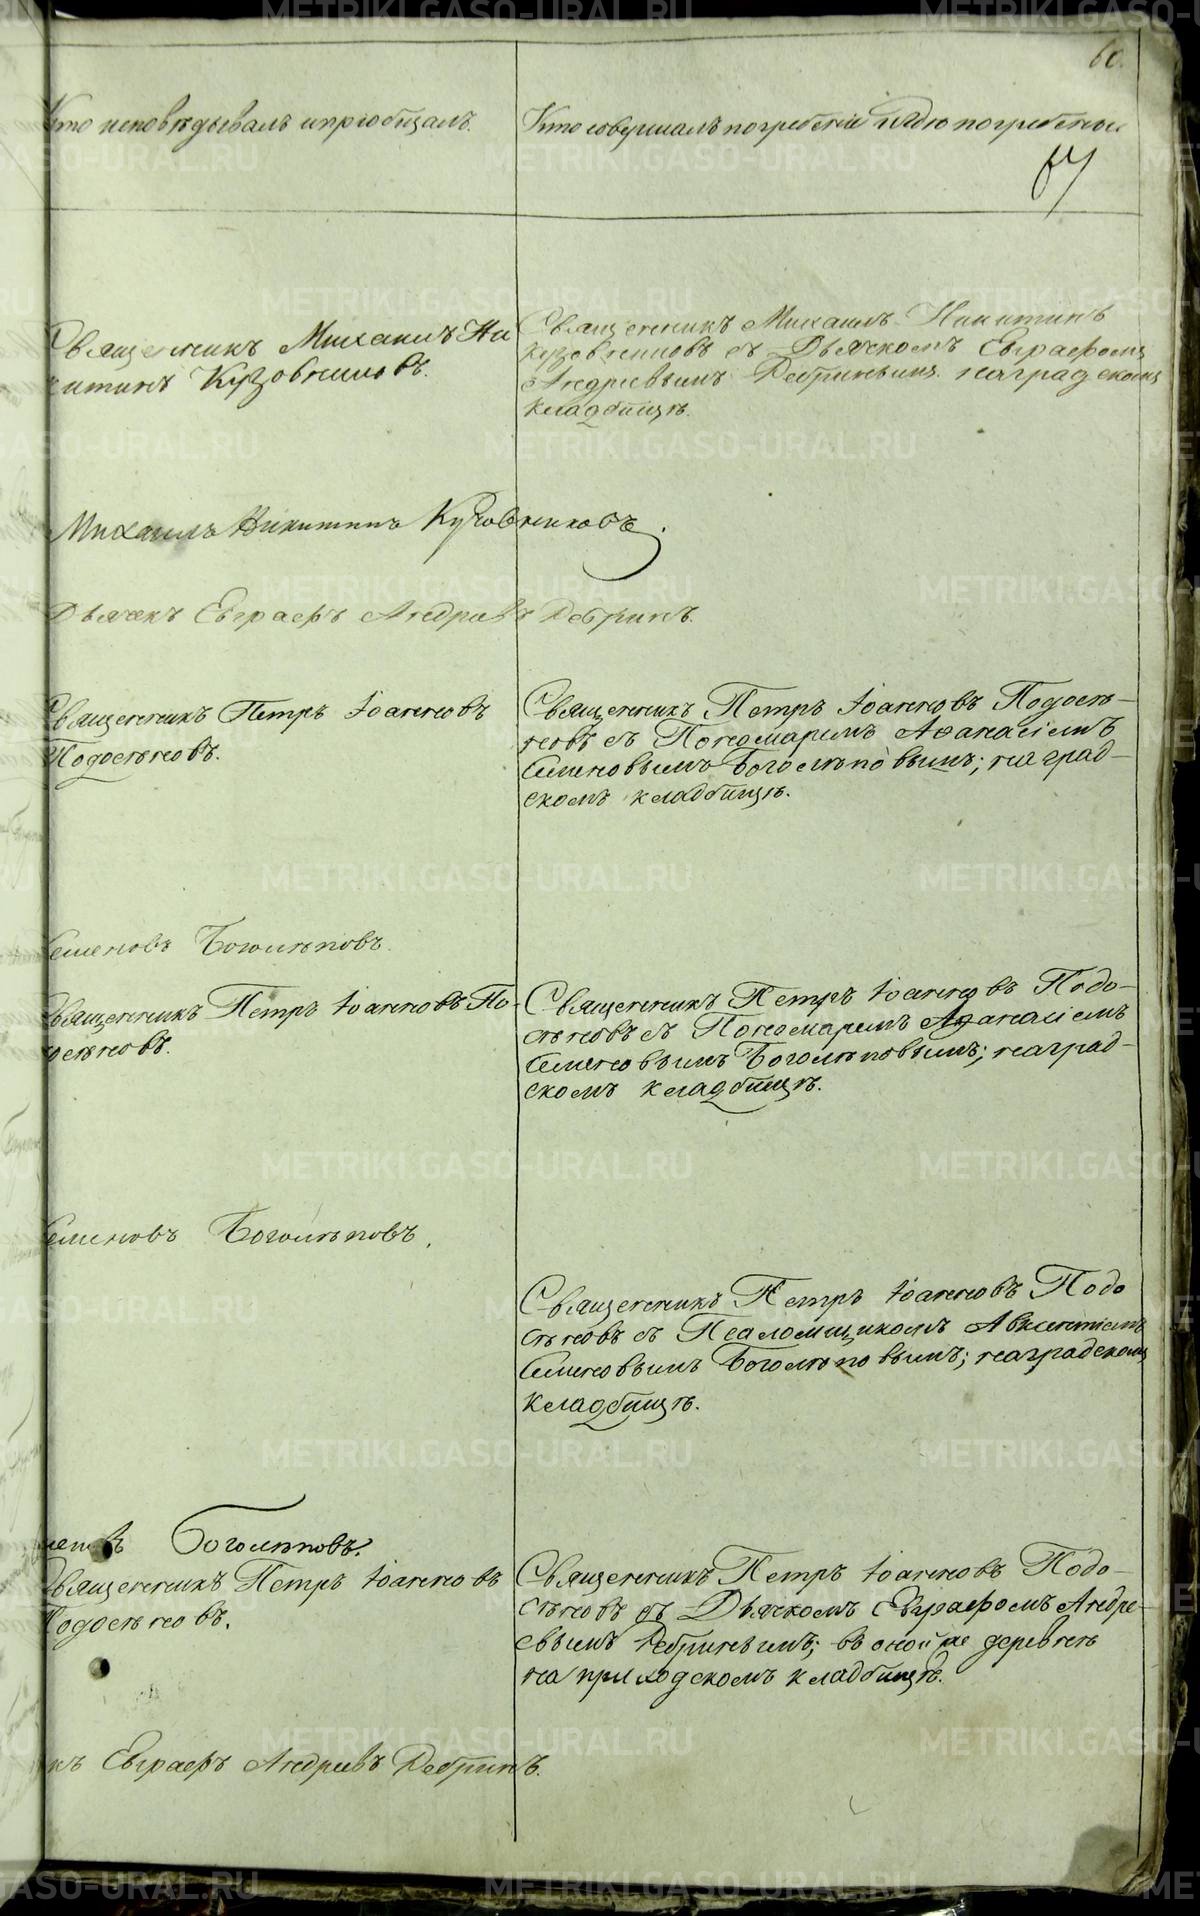 60.
Кто исповѣдывалъ и пріобщалъ.
Кто совершалъ погребеніе и гдѣ погребены
Священникъ Михаилъ Ни
китинъ Кузовниковъ.
Священникъ Михаилъ Никитинъ
Кузовниковъ съ Дьячкомъ Евграфомъ
Андріевымъ Ребринымъ на градскомъ
кладбищѣ.
Михаилъ Никитинъ Кузовниковъ.
Дьячекъ Евграфъ Андріевъ Ребринъ.
Священникъ Петръ Іоанновъ
Подосѣновъ.
Священникъ Петръ Іоанновъ Подосѣ-
новъ съ Пономаремъ Аѳанасіемъ
Семеновымъ Боголѣповымъ; на град-
скомъ кладбищѣ.
Семеновъ Боголѣповъ.
Священникъ Петръ Іоанновъ По-
досѣновъ.
Священникъ Петръ Іоанновъ Подо-
сѣновъ съ Пономаремъ Аѳанасіемъ
Семеновымъ Боголѣповымъ; на град-
скомъ кладбищѣ.
Семеновъ Боголѣповъ.
Священникъ Петръ Іоанновъ Подо
сѣновъ съ Псаломщикомъ Авксентіемъ
Семеновымъ Боголѣповымъ; на градскомъ
кладбищѣ.
Боголѣповъ.
Священникъ Петръ Іоанновъ
Подосѣновъ.
Священникъ Петръ Іоанновъ Подо-
сѣновъ съ Дьячкомъ Евграфомъ Андре-
евымъ Ребринымъ; въ оной же деревнѣ
на приходскомъ кладбищѣ.
къ Евграфъ Андреевъ Ребринъ.
METRIKI.GASO-URAL.RU